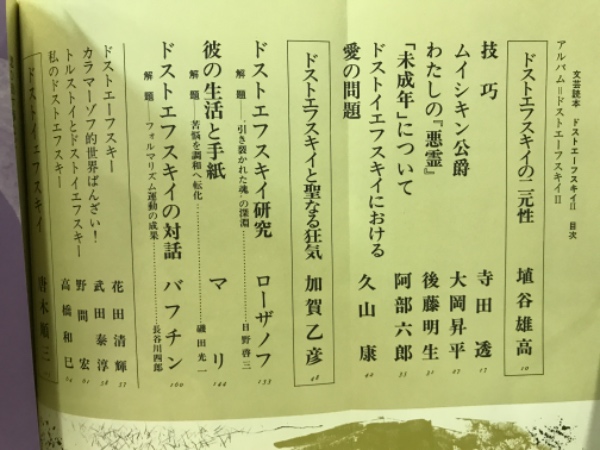 文芸読本 ドストエーフスキイⅡ 目次
アルバム=ドストエーフスキイⅡ
ドストエフスキイの二元性 埴谷雄高 10
技巧 寺田透 17
ムイシキン公爵 大岡昇平 27
わたしの『悪霊』 後藤明生 31
「未成年」について 阿部六郎 35
ドストイエフスキイにおける
愛の問題 久山康 44
ドストエフスキイと聖なる狂気 加賀乙彦 48
ドストエフスキイ研究 ローザノフ 133
解題——〝引き裂かれた魂〟の深淵 日野啓三
彼の生活と手紙 マリ 144
解題——苦悩を調和へ転化 磯田光一
ドストエフスキイの対話 バフチン 160
解題——フォルマリズム運動の成果 長谷川四郎
ドストエーフスキー 花田清輝 57
カラマーゾフ的世界ばんざい! 武田泰淳 58
トルストイとドストイエフスキー 野間宏 61
私のドストエフスキー 高橋和巳
ドストイエフスキイ 唐木順三